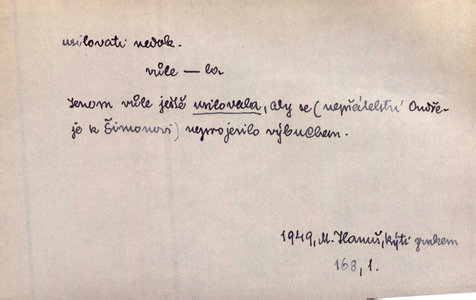 usilovati nedok.
vůle — la
Jenom vůle ještě usilovala, aby se (nepřátelství Ondře-
je k Šimonovi) neprojevilo výbuchem.
1949, M. Hanuš, kýti
168, 1.